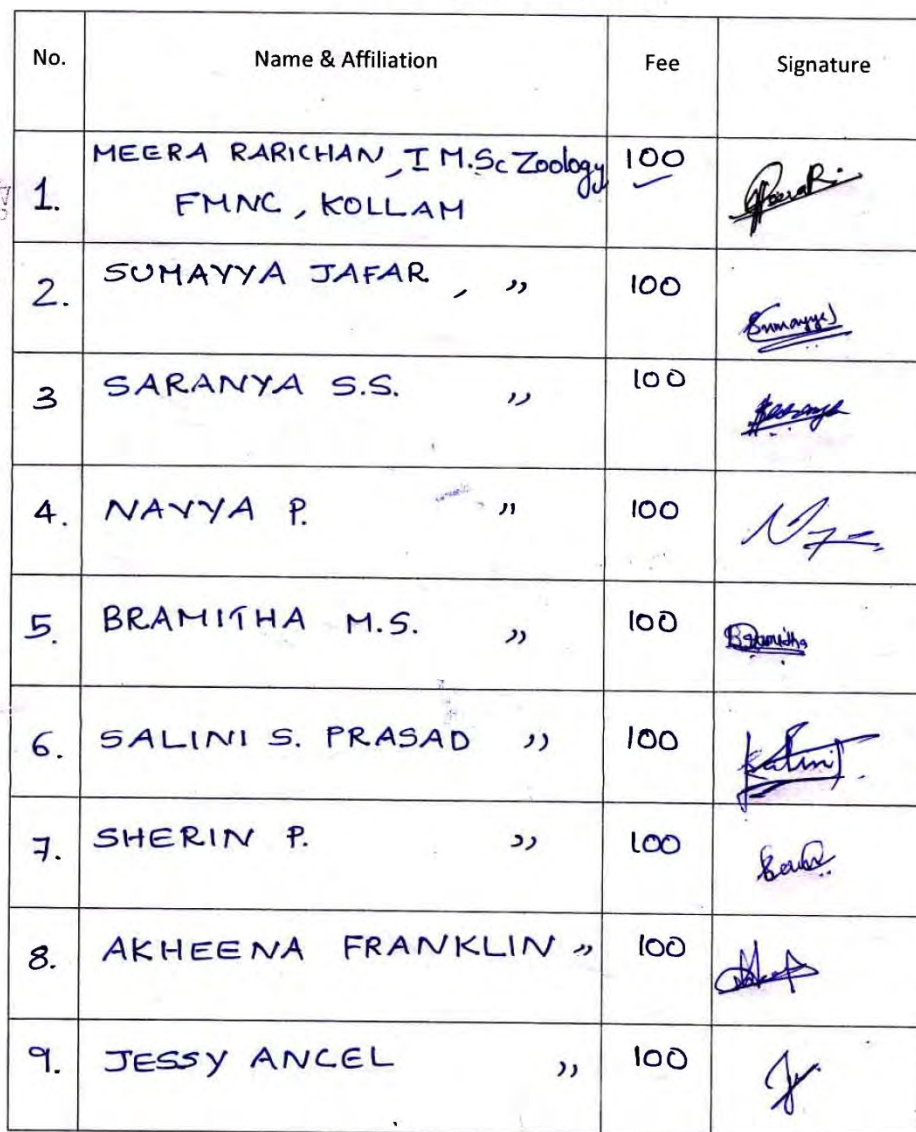 No. Name & Affiliation Fee Signature
1. MEERA RARICHAN, I M.Sc Zoology 100
FMNC, KOLLAM
2. SUMAYYA JAFAR, ,, 100 Sumayya J
3 SARANYA S.S. ,, 100 Saranya
4. NAYYA P. ,, 100
5. BRAMITHA M.S. ,, 100 Bramitha
6. SALINI S. PRASAD ,, 100 Salini
7. SHERIN P. ,, 100
8. AKHEENA FRANKLIN ,, 100
9. JESSY ANCEL ,, 100